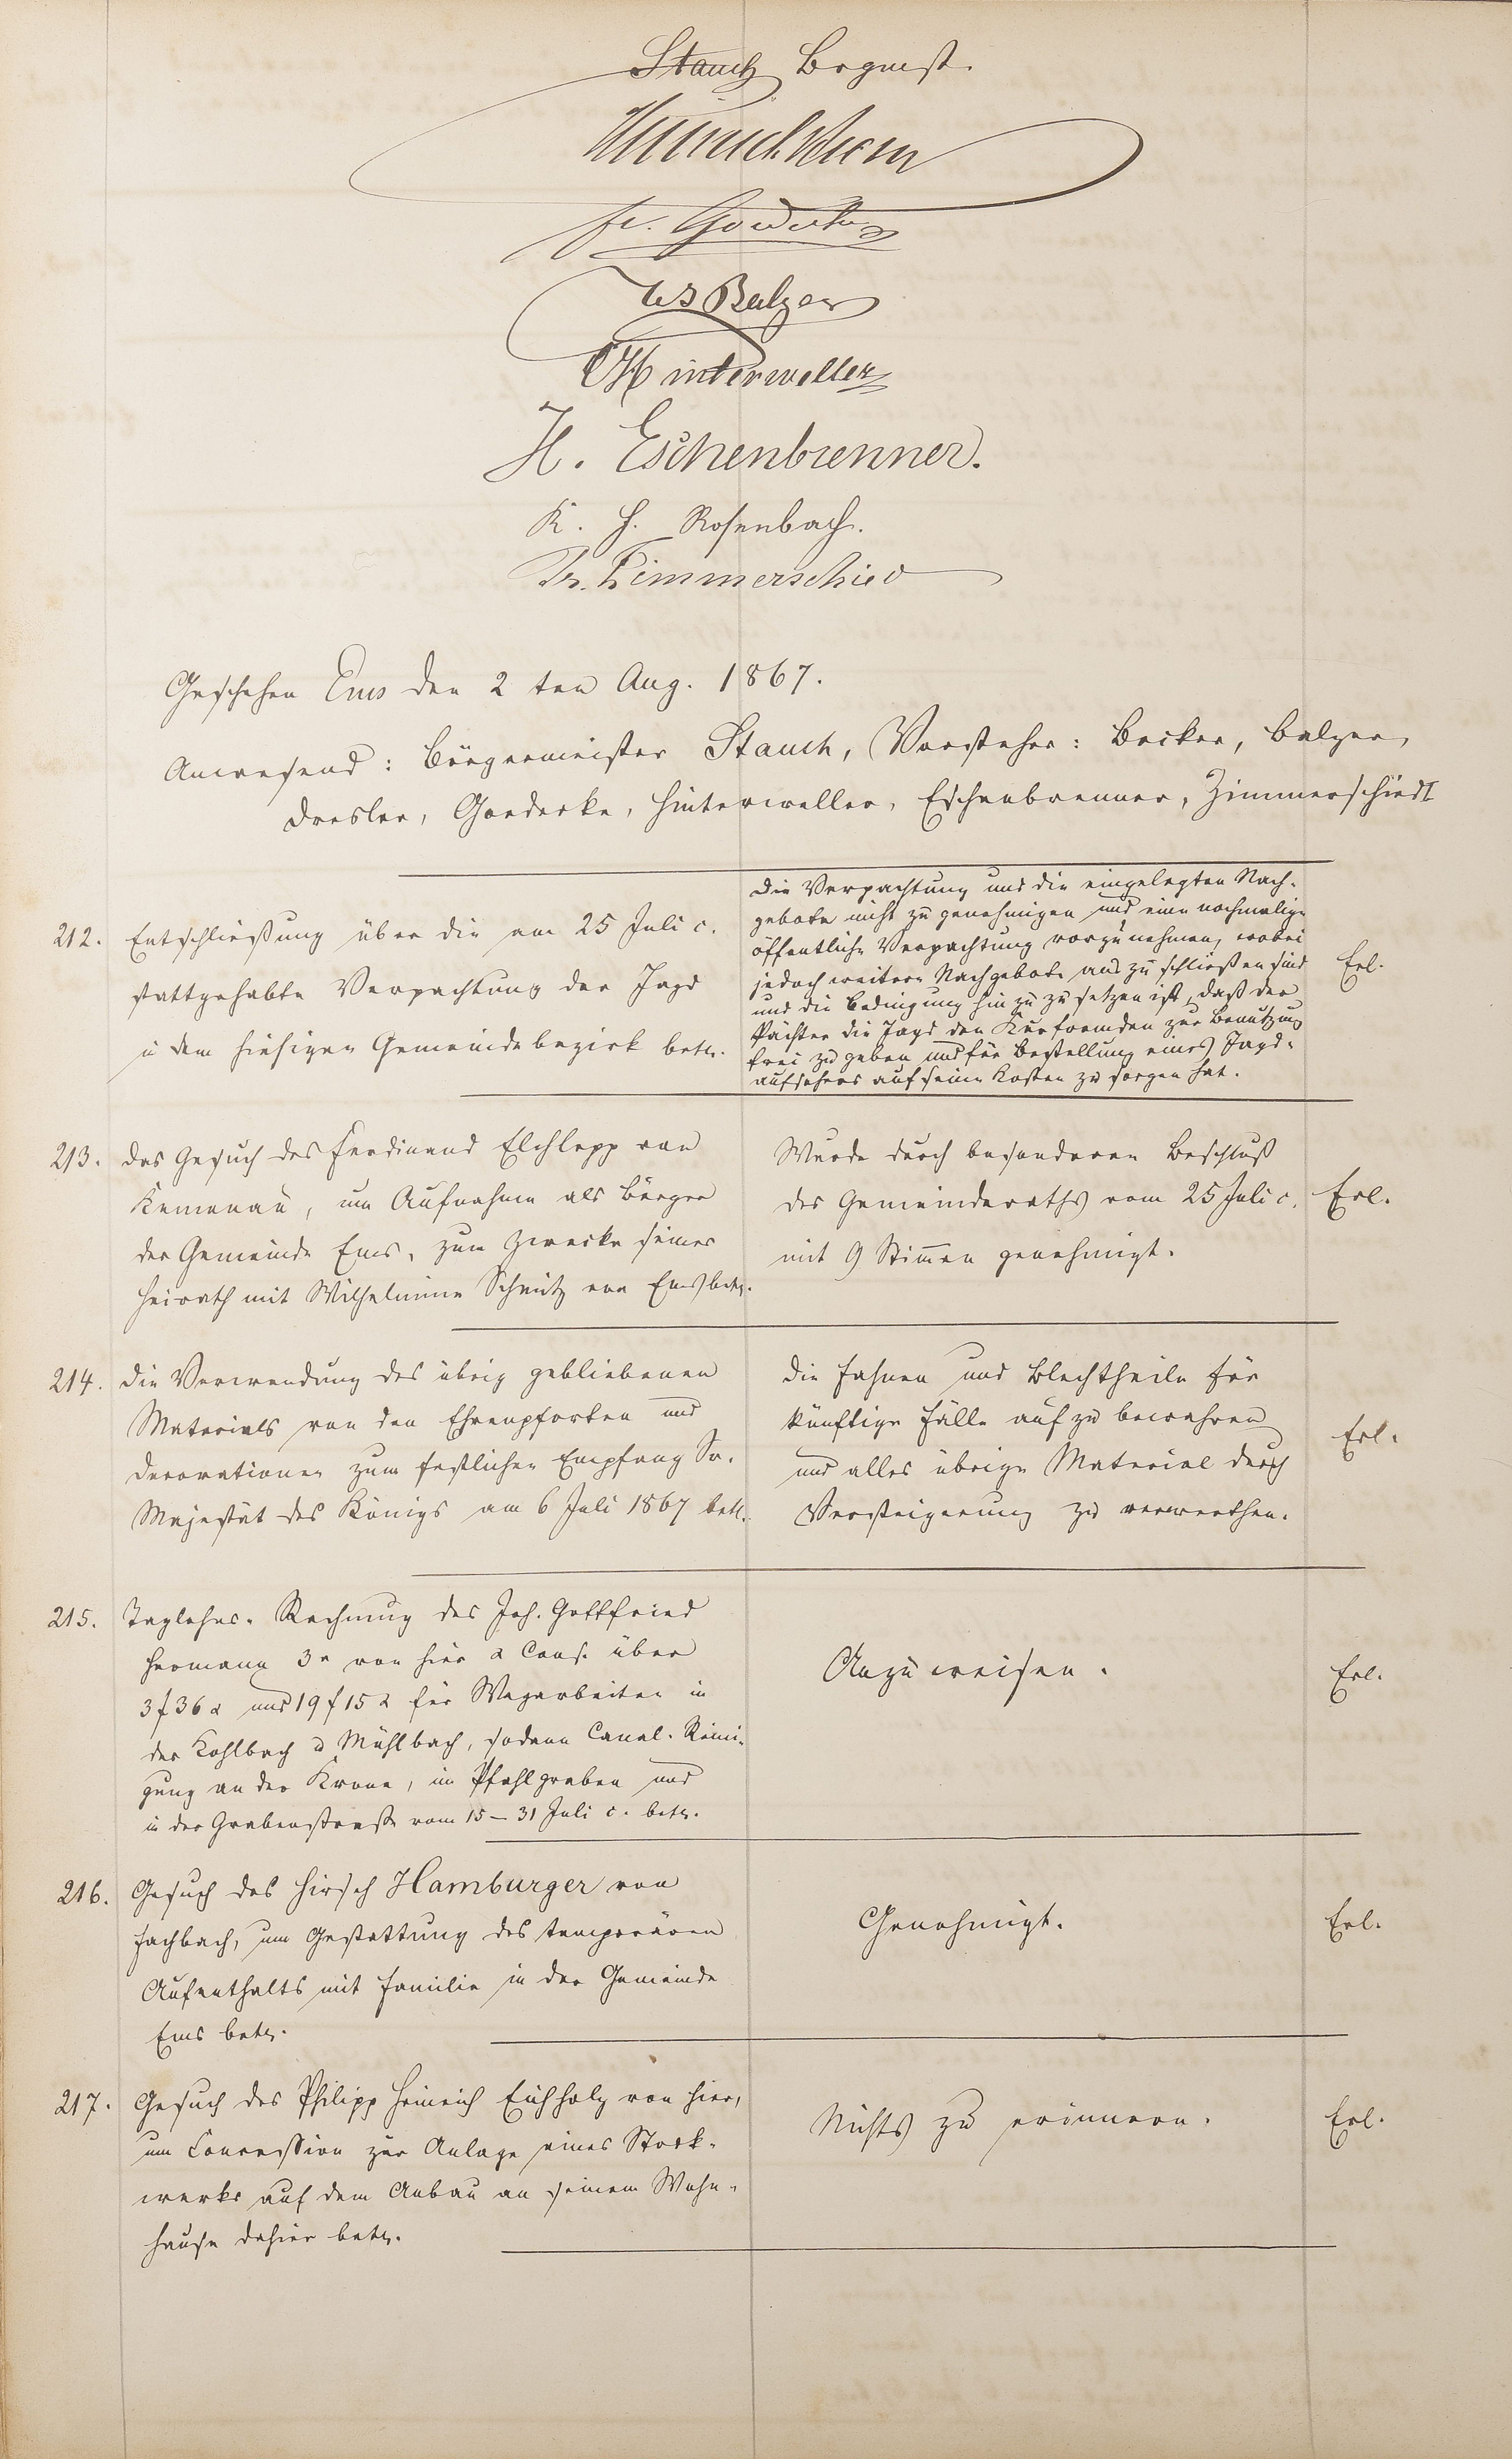 Stauch Brgmst.
Fr. Goedecke
Ws Balzer
Hinterweller
H. Eschenbrenner.
K. H. Rosenbach.
Zimmerschied
Geschehen Ems den 2 ten Aug. 1867.
Anwesend: Bürgermeister Stauch, Vorsteher: Becker, Balzer,
Dresler, Goedecke, Hinterweller, Eschenbrenner, Zimmerschiedt
212.
Entschließung über die am 25 Juli c.
stattgehabte Verpachtung der Jagd
in dem hiesigen Gemeindebezirk betr.
Die Verpachtung und die eingelegten Nach-
gebote nicht zu genehmigen und eine nochmalige
öffentliche Verpachtung vorzunehmen, wobei
jedoch weitere Nachgebote aus zu schließen sind
und die Bedingung hin zu zu setzen ist, daß der
Pächter die Jagd den Kurfremden zur Benutzung
frei zu geben und für Bestellung eines Jagd-
aufsehers auf seine Kosten zu sorgen hat.
Erl.
213.
Das Gesuch des Ferdinand Elchlepp von
Kemenau, um Aufnahme als Bürger
der Gemeinde Ems, zum Zwecke seiner
Heirath mit Wilhelmine Schmitz von Ems betr.
Wurde durch besonderen Beschluß
des Gemeinderaths vom 25 Juli c.
mit 9 Stimen genehmigt.
Erl.
214.
Die Verwendung des übrig gebliebenen
Materials von den Ehrenpforten und
Decorationen zum festlichen Empfang Sr.
Majestät des Königs am 6 Juli 1867 betr.
Die Fahnen und Blechtheile für
künftige Fälle auf zu bewahren
und alles übrige Material durch
Versteigerung zu verwerthen.
Erl.
215.
Taglohns-Rechnung des Joh. Gottfried
Hermann 3r von hier & Cons. über
3 f 36 x und 19 f 15 x für Wegarbeiten in
der Kohlbach u Mühlbach, sodann Canal-Reini-
gung an der Krone, im Pfahlgraben und
in der Grabenstraße vom 15 – 31 Juli c. betr.
Anzuweisen.
Erl.
216.
Gesuch des Hirsch Hamburger von
Fachbach, um Gestattung des temporären
Aufenthalts mit Familie in der Gemeinde
Ems betr.
Genehmigt.
Erl.
217.
Gesuch des Philipp Heinrich Eichholz von hier,
um Concession zur Anlage eines Stock-
werks auf dem Anbau an seinem Wohn-
hause dahier betr.
Nichts zu erinnern.
Erl.